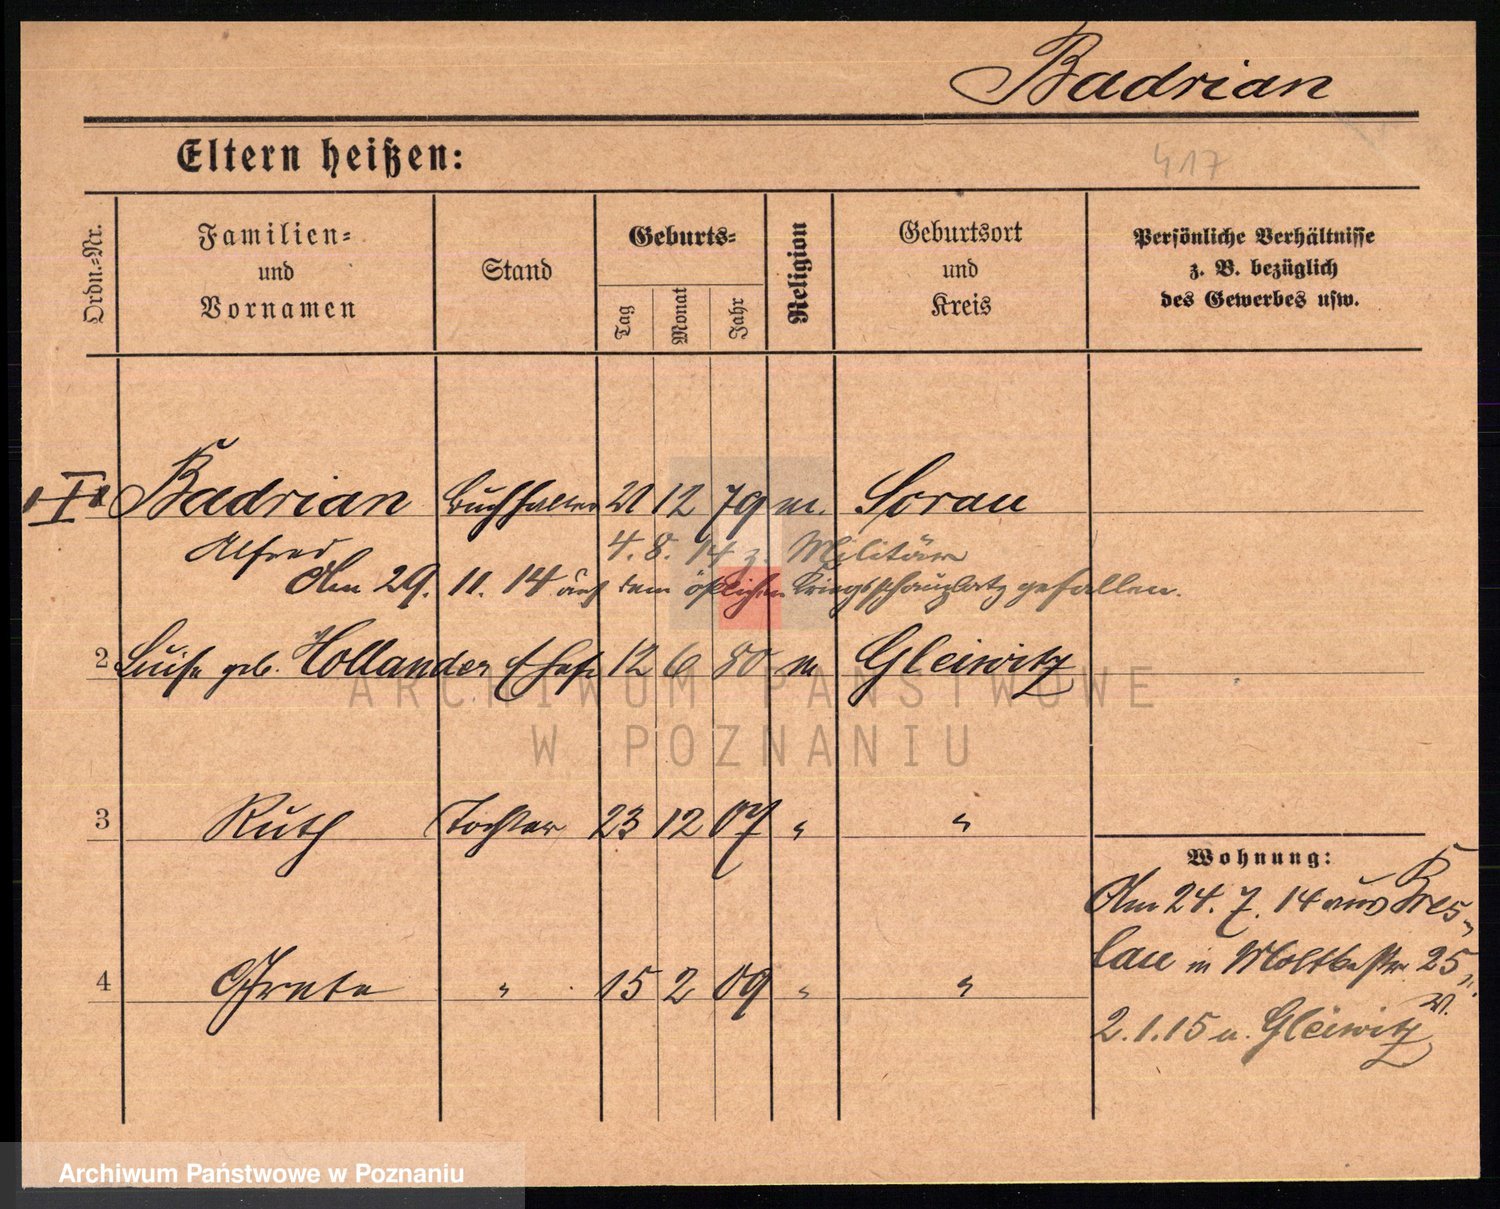 Badrian
Eltern heißen:
417
Ordn.-Nr.
Familien-
und
Vornamen
Stand
Geburts-
Tag
Monat
Jahr
Religion
Geburtsort
und
Kreis
Persönliche Verhältnisse
z. B. bezüglich
des Gewerbes usw.
Badrian Buchhalter 21 12 79 m. Sorau
Alfred 4. 8. 14 z. Militär
Am 29. 11. 14 auf dem östlichen Kriegsschauplatz gefallen.
2 Luise geb. Hollander Ehefr 12 6 80 m Gleiwitz
ARCHIWUM PAŃSTWOWE
W POZNANIU
3 Ruth Tochter 23 12 07 " "
4 Grete " 15 2 09 " "
Wohnung:
Am 24. 7. 14 aus Bres-
lau in Moltkestr. 25
II.
2.1.15 n. Gleiwitz
Archiwum Państwowe w Poznaniu